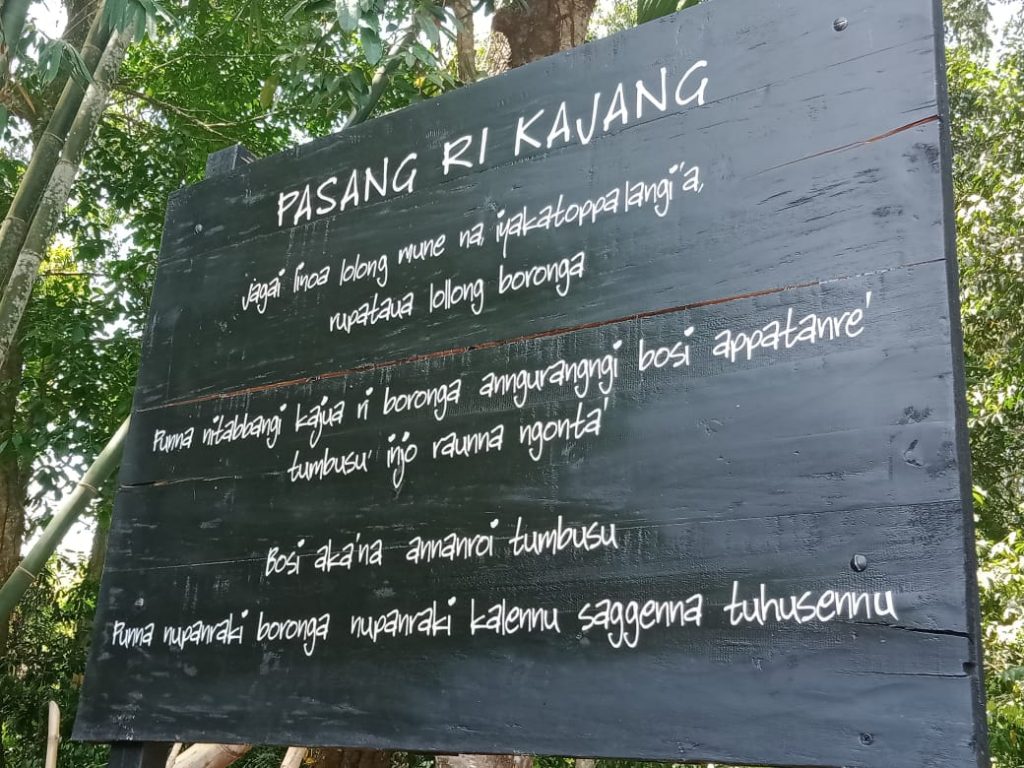 PASANG RI KAJANG
Jagai linoa lolong mune na, iyakatoppalangi'a,
rupataua lollong boronga
Punna nitabbangi kajua ri boronga anngurangngi bosi appatanre'
tumbusu' injo raunna ngonta'
Bosi aka'na annanroi tumbusu
Punna nupanraki boronga nupanraki kalennu saggenna tuhusennu